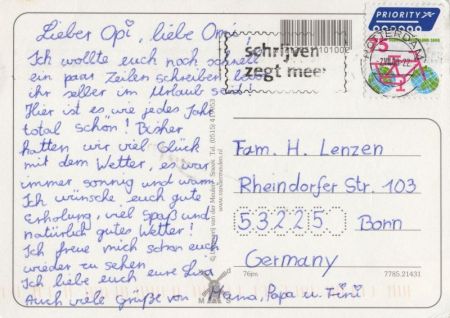 Lieber Opi, liebe Omi!
Ich wollte euch noch schnell
ein paar Zeilen schreiben, bevor
ihr selber im Urlaub seid!
Hier ist es wie jedes Jahr
total schön! Bisher
hatten wir viel Glück
mit dem Wetter, es war
immer sonnig und warm.
Ich wünsche euch gute
Erholung, viel Spaß und
natürlich gutes Wetter!
Ich freue mich schon euch
wieder zu sehen.
Ich liebe euch eure Lisa
Auch viele Grüße von Mama, Papa u. Fini
PRIORITY
ROTTERDAM
schrijven
zegt meer
Fam. H. Lenzen
Rheindorfer Str. 103
53225 Bonn
Germany
76pm
7785.21431